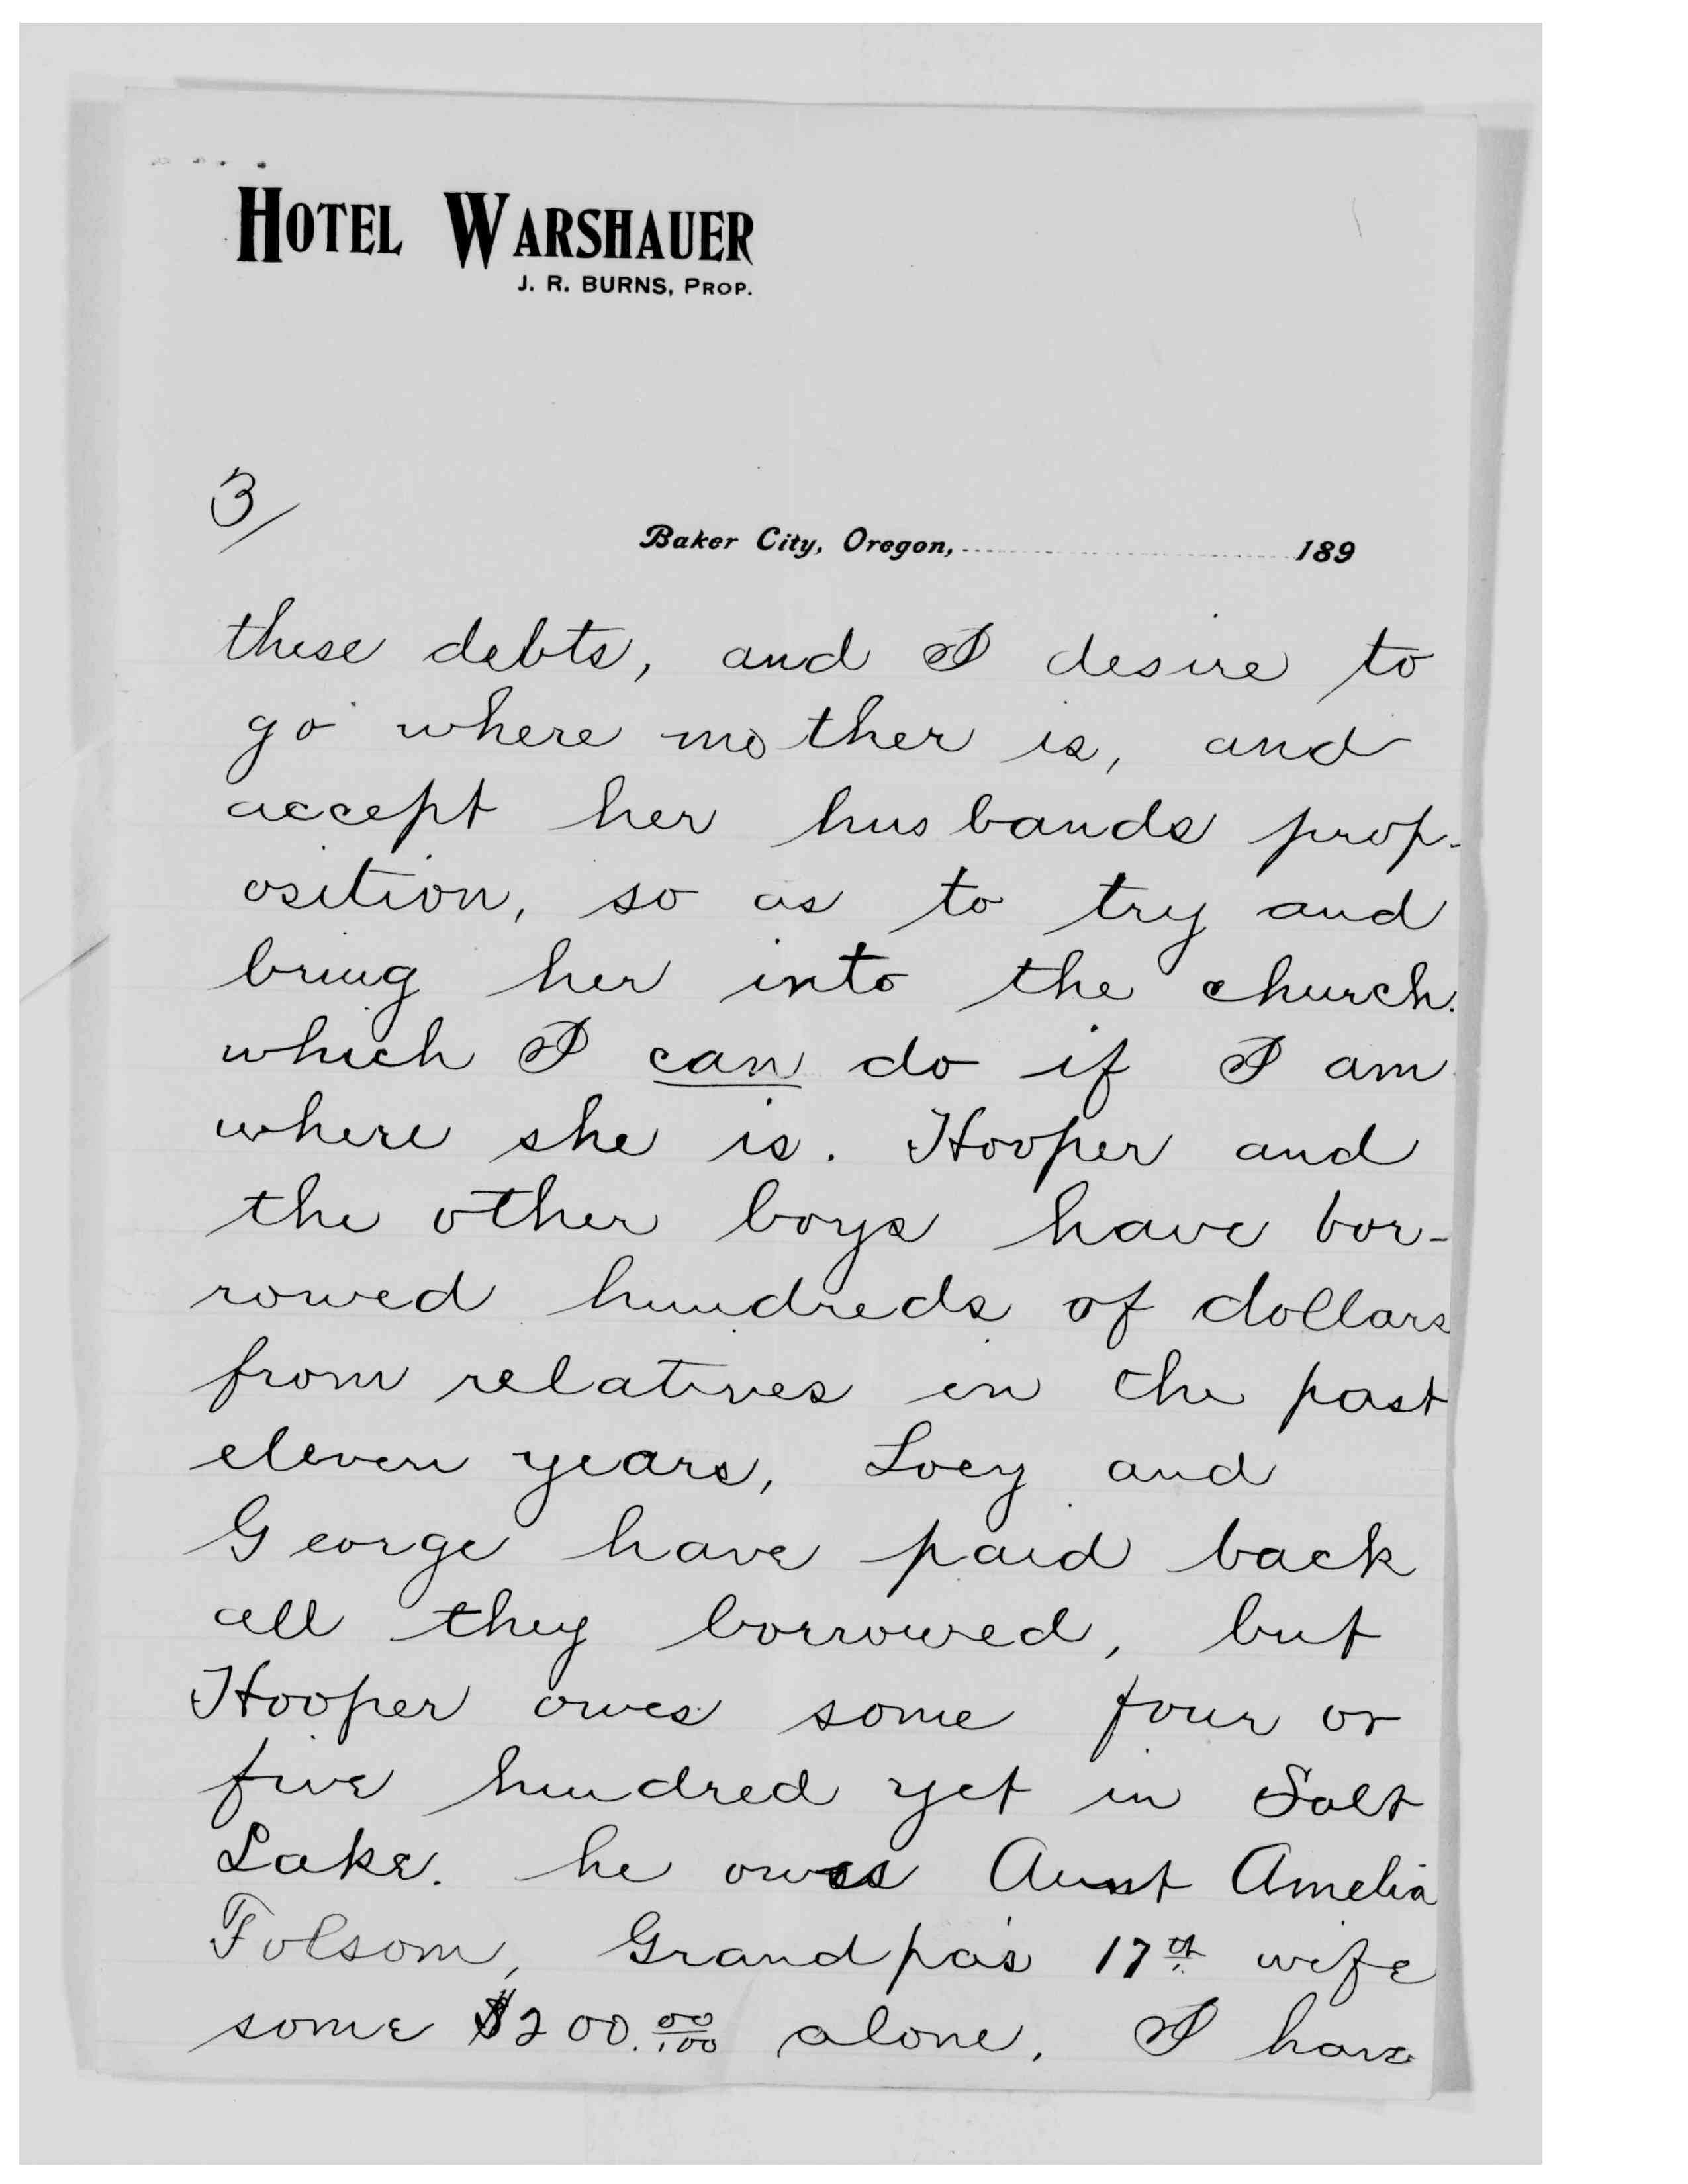 HOTEL WARSHAUER
J. R. BURNS, PROP.
3/
Baker City, Oregon, 189
these debts, and I desire to
go where mother is, and
accept her husbands prop-
osition, so as to try and
bring her into the church.
which I can do if I am
where she is. Hooper and
the other boys have bor-
rowed hundreds of dollars
from relatives in the past
eleven years, Loey and
George have paid back
all they borrowed, but
Hooper owes some four or
five hundred yet in Salt
Lake. he owes Aunt Amelia
Folsom, Grandpa's 17th wife
some $200.00/100 alone. I have